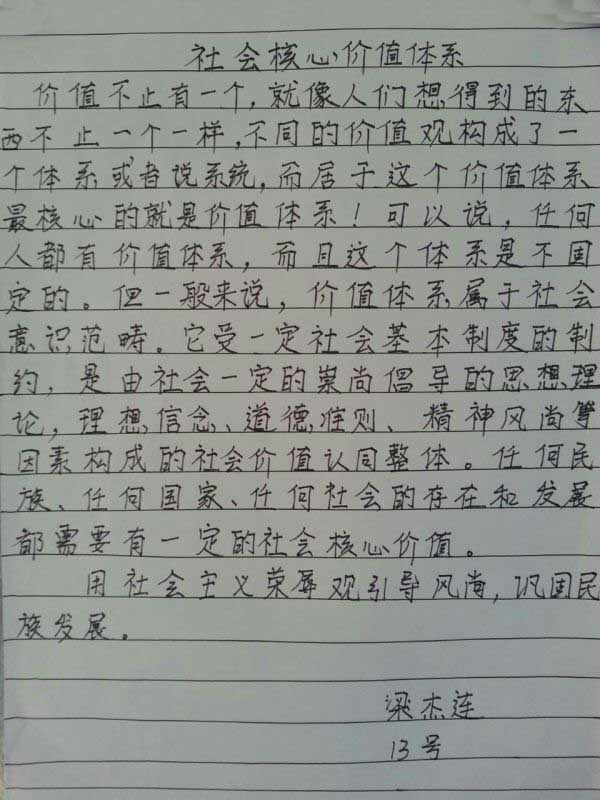 社会核心价值体系
价值不止有一个，就像人们想得到的东
西不止一个一样，不同的价值观构成了一
个体系或者说系统，而居于这个价值体系
最核心的就是价值体系！可以说，任何
人都有价值体系，而且这个体系是不固
定的。但一般来说，价值体系属于社会
意识范畴。它受一定社会基本制度的制
约，是由社会一定的崇尚倡导的思想理
论，理想信念、道德准则、精神风尚等
因素构成的社会价值认同整体。任何民
族、任何国家、任何社会的存在和发展
都需要有一定的社会核心价值。
用社会主义荣辱观引导风尚，巩固民
族发展。
梁杰连
13号